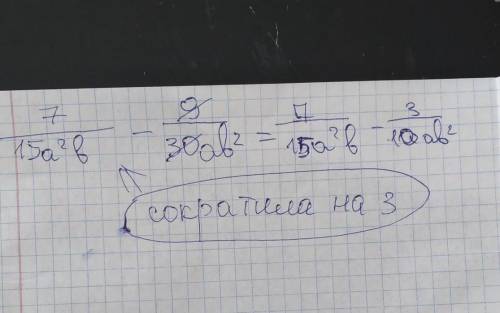 7/15a²b - 9/30ab² = 7/15a²b - 3/10ab²
сократила на 3